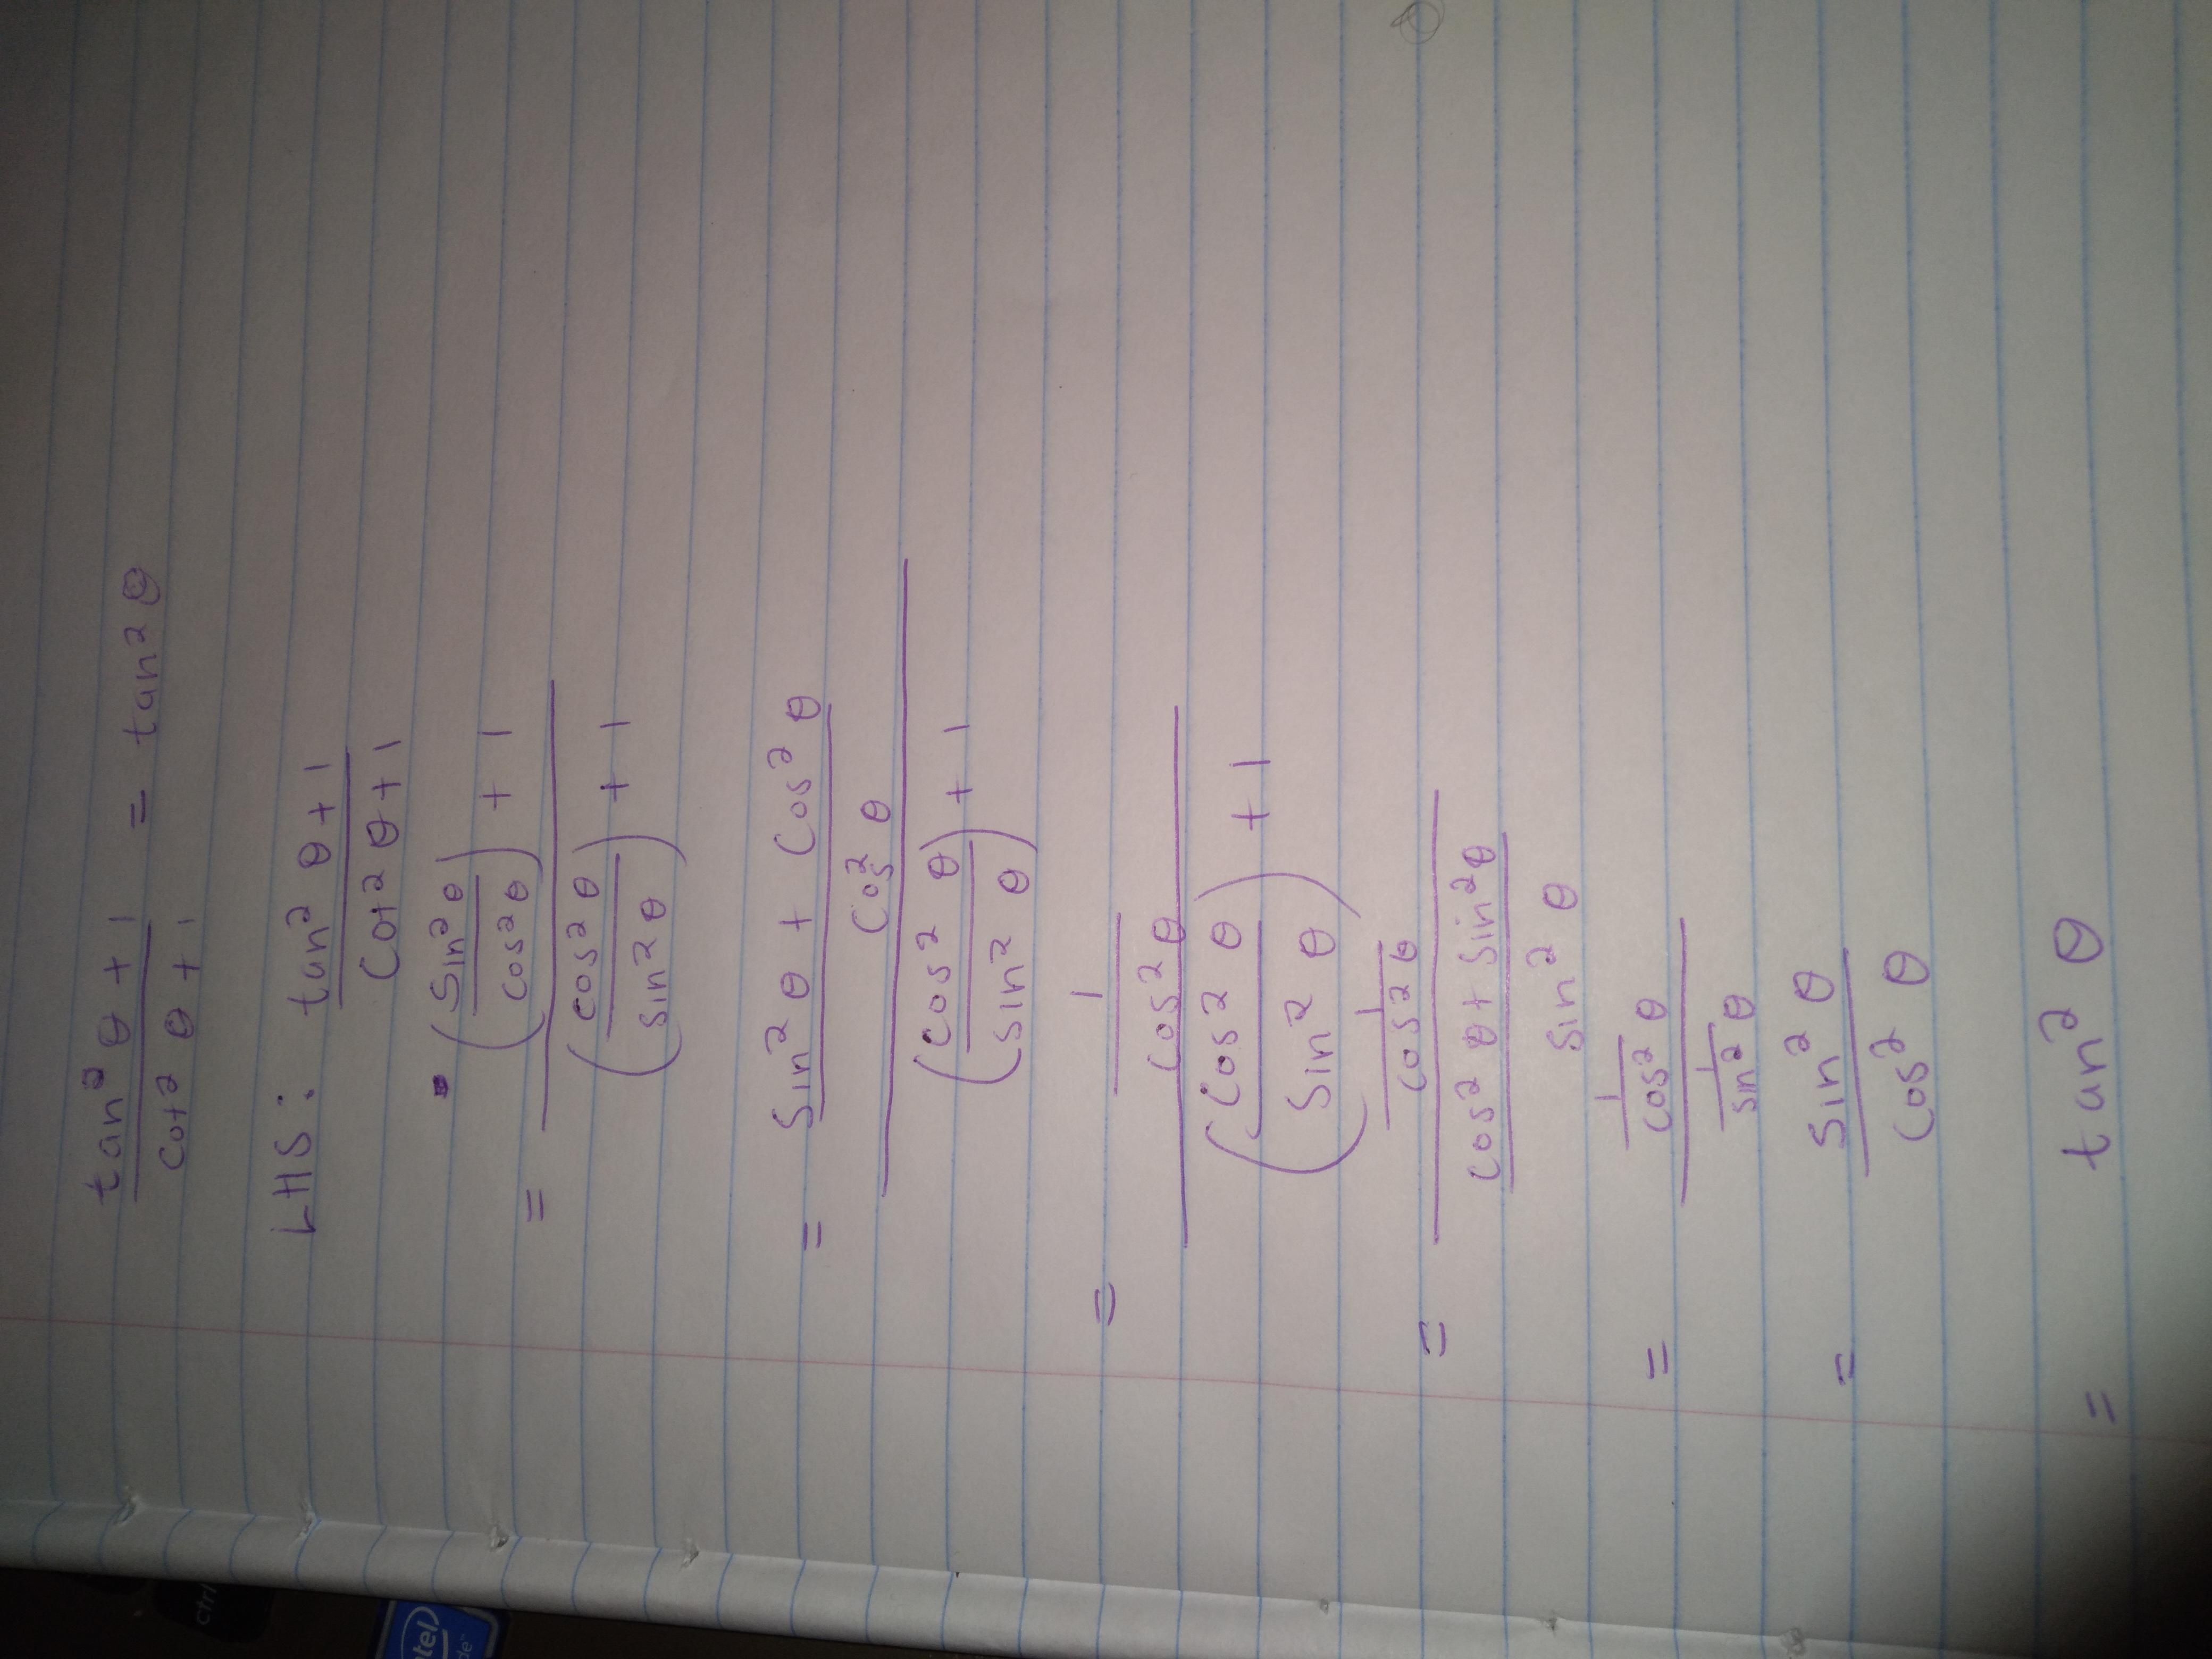 tan² θ + 1 / cot² θ + 1 = tan² θ
LHS: tan² θ + 1 / cot² θ + 1
= (sin² θ / cos² θ) + 1 / (cos² θ / sin² θ) + 1
= sin² θ + cos² θ / cos² θ / (cos² θ / sin² θ) + 1
= 1 / cos² θ / (cos² θ / sin² θ) + 1
= 1 / cos² θ / cos² θ + sin² θ / sin² θ
= 1 / cos² θ / 1 / sin² θ
= sin² θ / cos² θ
= tan² θ
ctrl